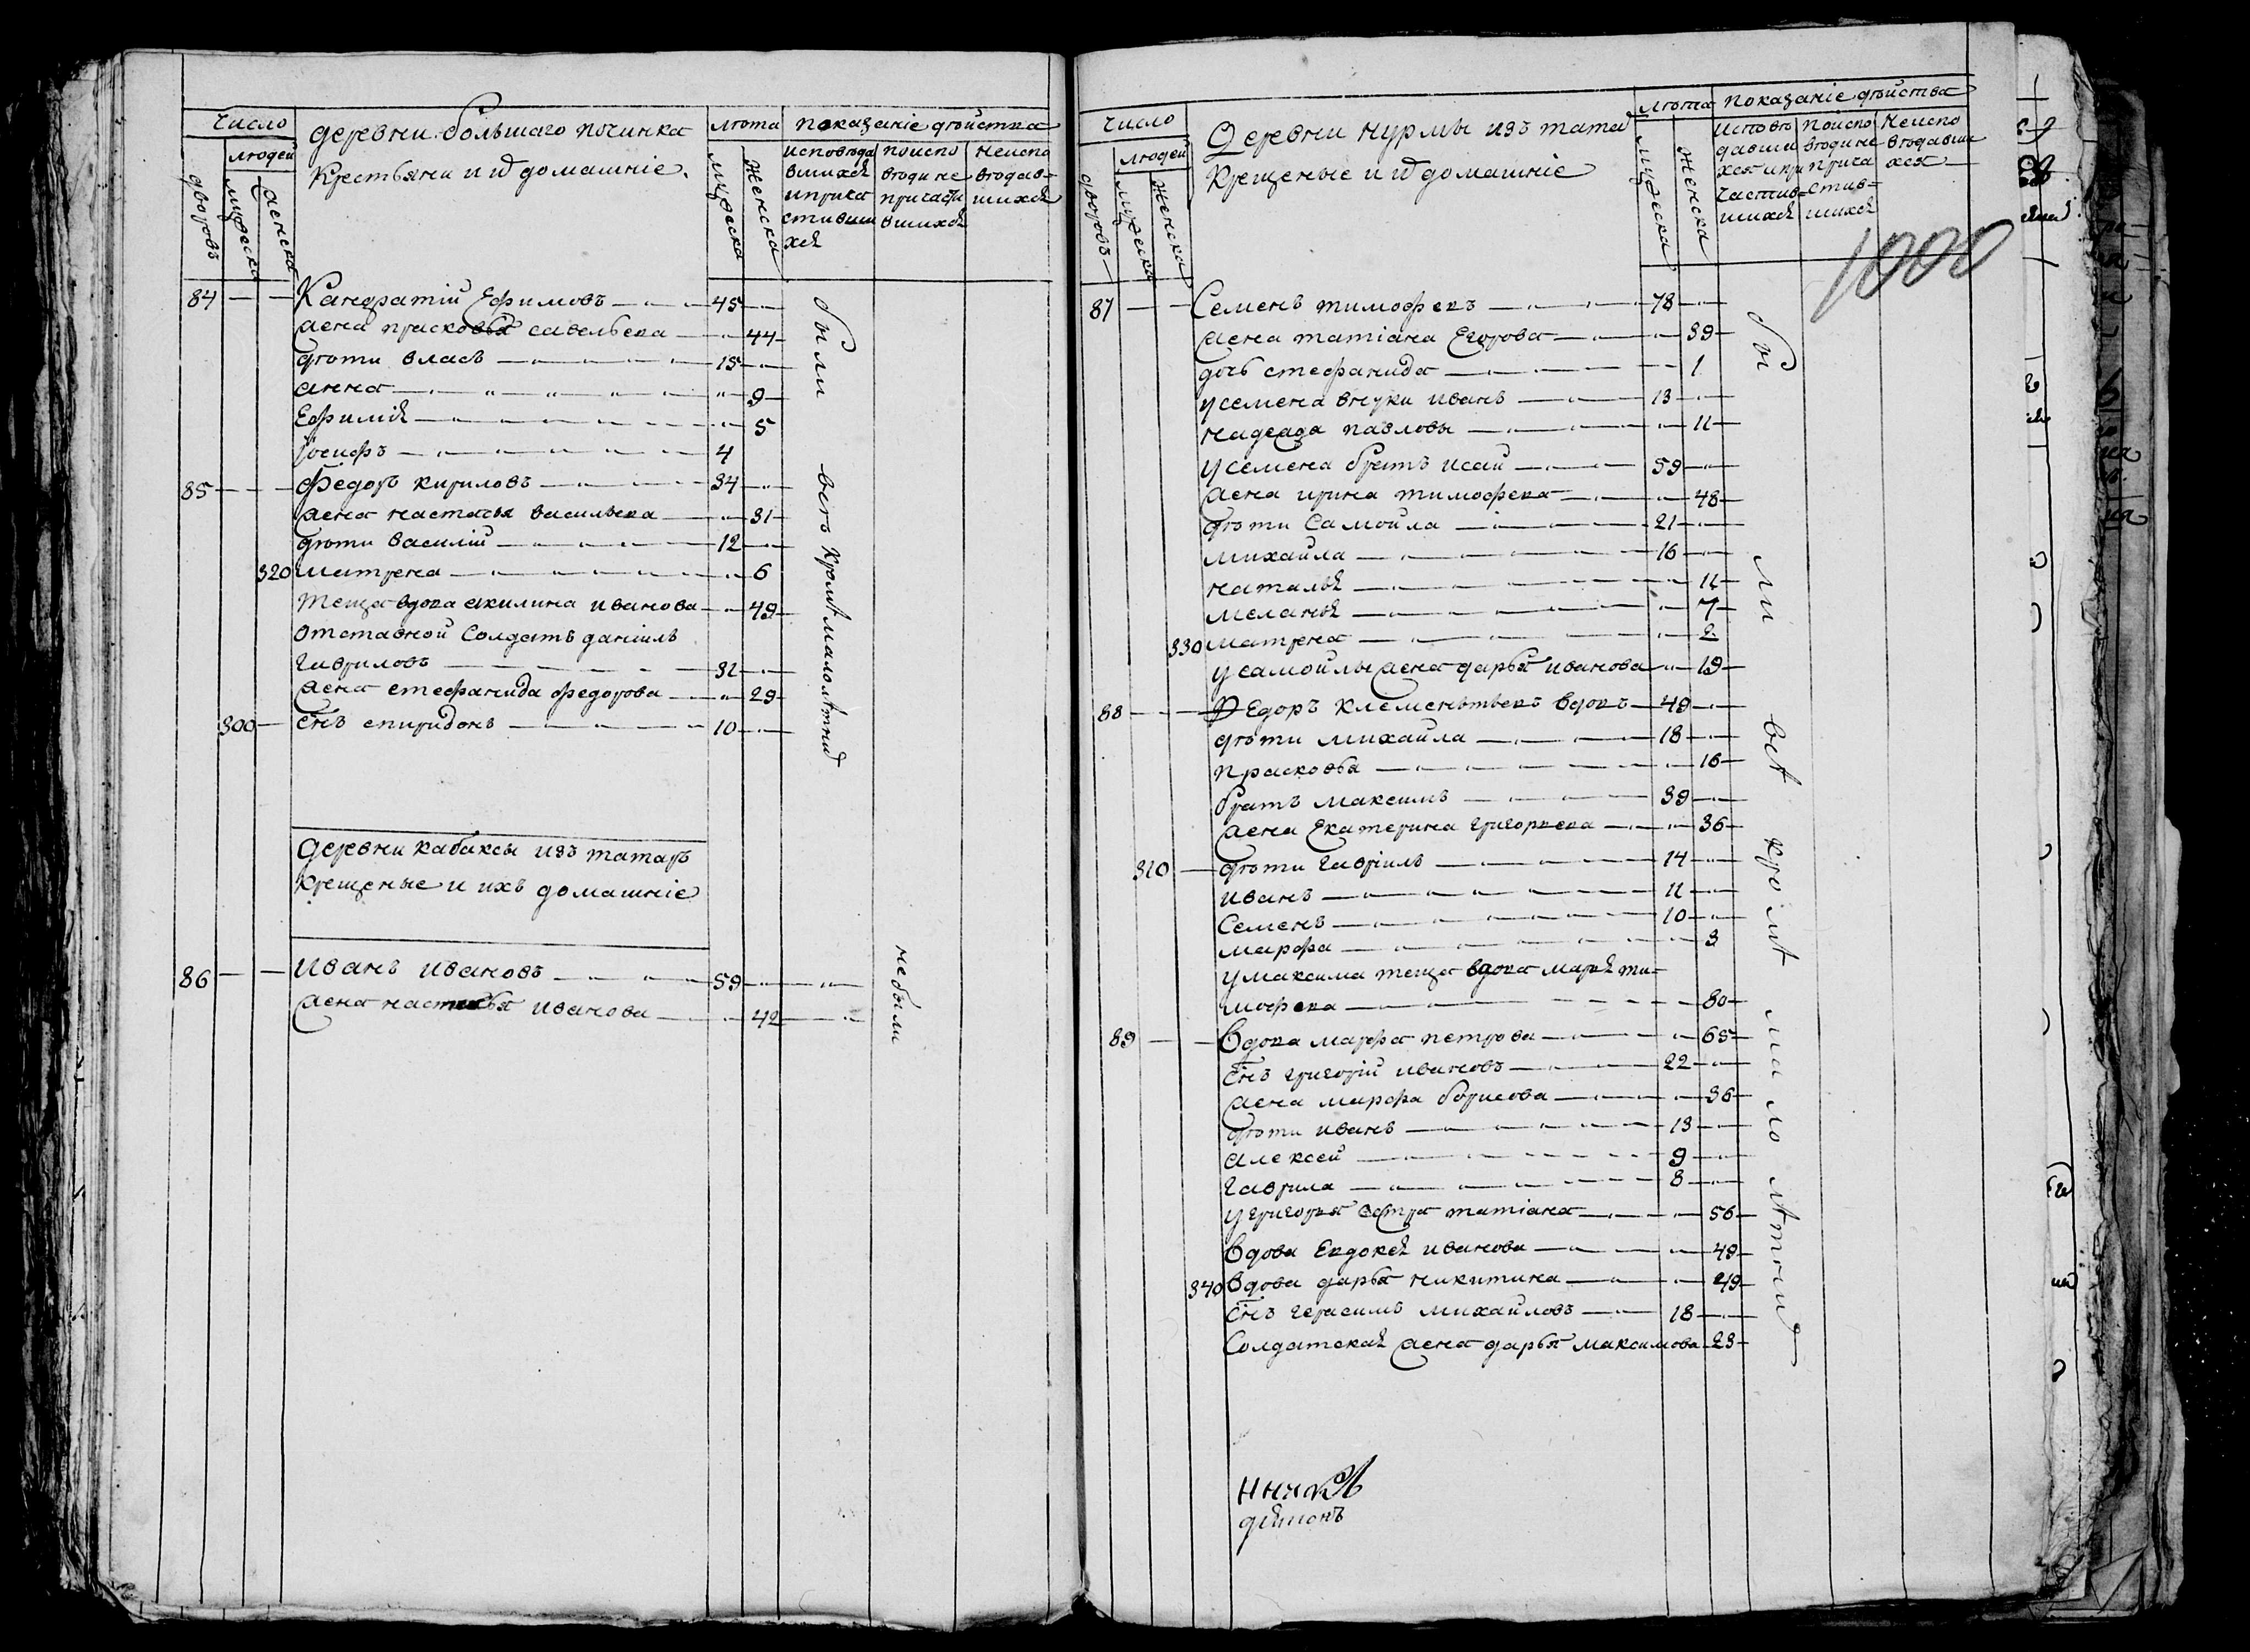 число
людей
дворовъ
мужеска
женска
деревни большаго починка
Крестьяни и ихъ домашнiе.
лѣта
мужеска
женска
показанiе дѣйства
исповѣда
вшихся
и прича
стивши
хся
по испо
вѣди не
причасти
вшихся
не испо
вѣдав-
шихся
84 Кандратiй Ефимовъ 45
жена прасковья савельева 44
дѣти власъ 15
анна 9
Ефимiя 5
Iосифъ 4
85 Федоръ кириловъ 34
жена настасья васильева 31
дѣти василiй 12
320 матрена 6
теща вдова акилина иванова 49
отставной солдатъ данiилъ
гавриловъ 31
жена стефанида федорова 29
300 снъ спиридонъ 10
были всѣ кромѣ малолѣтних
деревни кабаксы изъ татаръ
крещеные и ихъ домашнiе
86 иванъ ивановъ 59
жена настасья иванова 42
небыли
число
людей
дворовъ
мужеска
женска
Деревни нурмы изъ татар
крещеные и их домашнiе
лѣта
мужеска
женска
показанiе дѣйства
исповѣ
давши
хся и при
частив-
шихся
по испо
вѣди не
прича
стив-
шихся
не испо
вѣдавши
хся
1000
87 Семенъ тимофеевъ 78
жена татiана Егорова 39
дочь стефанида 1
у семена внуки иванъ 13
надежда павловы 11
у семена братъ исай 59
жена ирина тимофеева 48
дѣти Самойла 21
михайла 16
наталья 11
меланья 7
330 матрена 2
у самойлы жена дарья иванова 19
88 Федоръ клементьевъ вдовъ 49
дѣти михайла 18
прасковья 16
братъ максимъ 39
жена Екатерина григорьева 36
310 дѣти гаврiилъ 14
иванъ 11
Семенъ 10
марфа 3
у максима теща вдова марья ти-
мофеева 80
89 Вдова марфа петрова 65
снъ григорiй ивановъ 22
жена марфа борисова 36
дѣти иванъ 13
алексей 9
гаврила 8
у григорья сестра татiана 56
Вдова Евдокея иванова 49
340 Вдова дарья никитина 49
снъ герасимъ михайловъ 18
Солдатская жена дарья максимова 23
были всѣ кромѣ малолѣтних